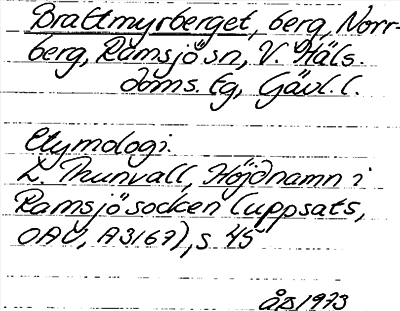 Brattmyrberget, berg, Norr-
berg, Ramsjö sn, V. Häls.
doms. tg, Gävl. l.
Etymologi.
L. Thunvall, Höjdnamn i
Ramsjö socken (uppsats,
OAU, A3167), s. 45
1973